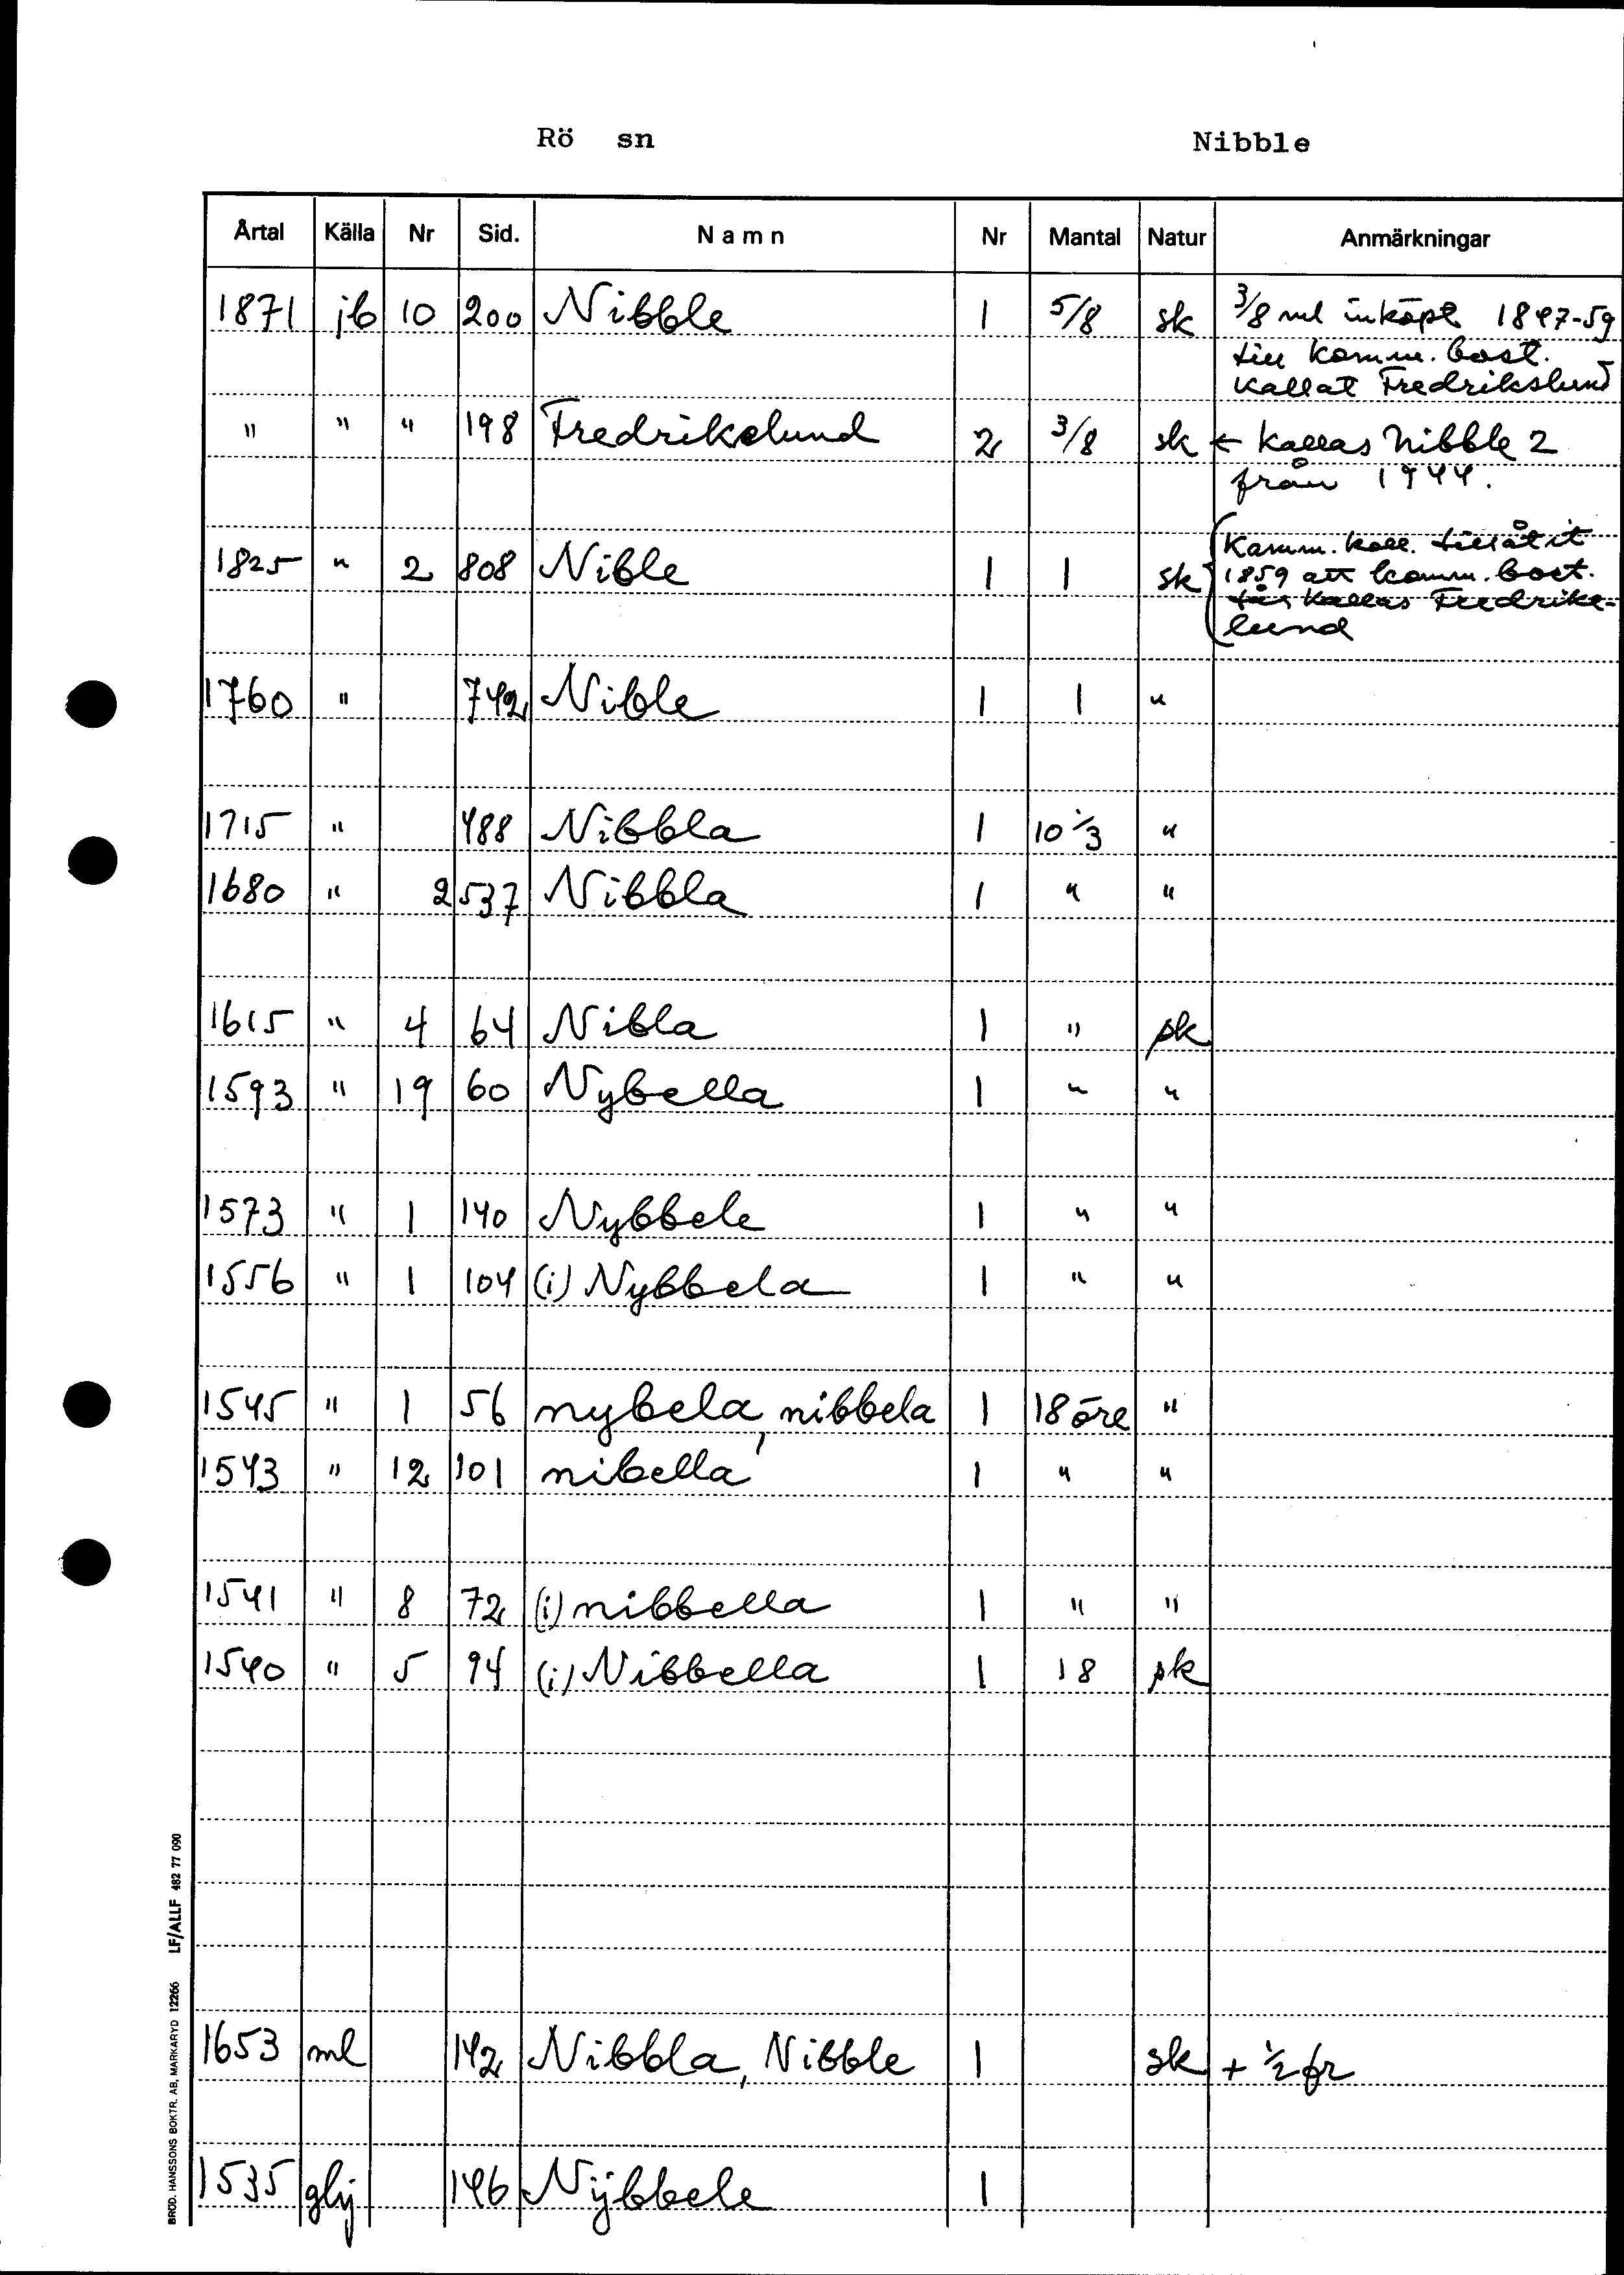 Rö sn Nibble
Årtal Källa Nr Sid. Namn Nr Mantal Natur Anmärkningar
1871 jb 10 200 Nibble 1 5/8 sk 3/8 ml inköpt 1847-59
till komm. bost.
kallat Fredrikslund
" " " 198 Fredrikslund 2 3/8 sk ← kallas Nibble 2
från 1944.
Kamm. koll. tillåtit
1825 " 2 808 Nible 1 1 sk 1859 att komm. bost.
får kallas Fredriks-
lund
1760 " 742 Nible 1 1 "
1715 " 488 Nibbla 1 10 1/3 "
1680 " 2 537 Nibbla 1 " "
1615 " 4 64 Nibla 1 " sk
1593 " 19 60 Nybella 1 " "
1573 " 1 140 Nybbele 1 " "
1556 " 1 104 (i) Nybbela 1 " "
1545 " 1 56 nybela, nibbela 1 18 öre "
1543 " 12 101 nibella 1 " "
1541 " 8 72 (i) nibbella 1 " "
1540 " 5 94 (i) Nibbella 1 18 sk
1653 ml 142 Nibbla, Nibble 1 sk + 1/2 fr
1535 glj 146 Nÿbbele 1
BROD. HANSSONS BOKTR. AB, MARKARYD 12266 LF/ALLF 482 77 090